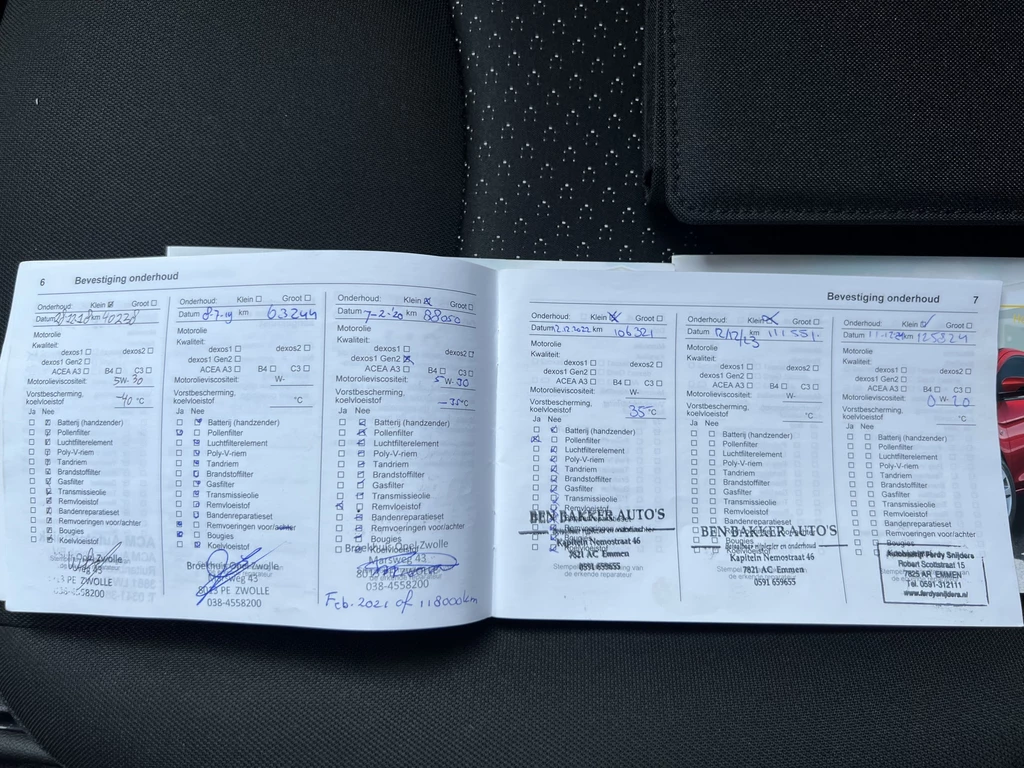 6 Bevestiging onderhoud
Onderhoud: Klein Groot
Datum km 40238
Motorolie
Kwaliteit:
dexos1 dexos2
dexos1 Gen2
ACEA A3 B4 C3
Motorolieviscositeit: 5W-30
Vorstbescherming, koelvloeistof -40 °C
Ja Nee
Batterij (handzender)
Pollenfilter
Luchtfilterelement
Poly-V-riem
Tandriem
Brandstoffilter
Gasfilter
Transmissieolie
Remvloeistof
Bandenreparatieset
Remvoeringen voor/achter
Bougies
Koelvloeistof
PE ZWOLLE
Onderhoud: Klein Groot
Datum 8-7-19 km 63244
Motorolie
Kwaliteit:
dexos1 dexos2
dexos1 Gen2
ACEA A3 B4 C3
Motorolieviscositeit: W-
Vorstbescherming, koelvloeistof °C
Ja Nee
Batterij (handzender)
Pollenfilter
Luchtfilterelement
Poly-V-riem
Tandriem
Brandstoffilter
Gasfilter
Transmissieolie
Remvloeistof
Bandenreparatieset
Remvoeringen voor/achter
Bougies
Koelvloeistof
Broerkuis Opel Zwolle
Marsweg 43
8013 PE ZWOLLE
038-4558200
Onderhoud: Klein Groot
Datum 7-2-'20 km 88050
Motorolie
Kwaliteit:
dexos1 dexos2
dexos1 Gen2
ACEA A3 B4 C3
Motorolieviscositeit: 5W-30
Vorstbescherming, koelvloeistof -35 °C
Ja Nee
Batterij (handzender)
Pollenfilter
Luchtfilterelement
Poly-V-riem
Tandriem
Brandstoffilter
Gasfilter
Transmissieolie
Remvloeistof
Bandenreparatieset
Remvoeringen voor/achter
Bougies
Koelvloeistof
Marsweg 43
038-4558200
Feb. 2021 of 118000km
Bevestiging onderhoud 7
Onderhoud: Klein Groot
Datum 2.12.2022 km 106321
Motorolie
Kwaliteit:
dexos1 dexos2
dexos1 Gen2
ACEA A3 B4 C3
Motorolieviscositeit: W-
Vorstbescherming, koelvloeistof 35 °C
Ja Nee
Batterij (handzender)
Pollenfilter
Luchtfilterelement
Poly-V-riem
Tandriem
Brandstoffilter
Gasfilter
Transmissieolie
Remvloeistof
BEN BAKKER AUTO'S
Kapitein Nemostraat 46
7821 AC Emmen
0591 659655
Onderhoud: Klein Groot
Datum 12/12/23 km 111551
Motorolie
Kwaliteit:
dexos1 dexos2
dexos1 Gen2
ACEA A3 B4 C3
Motorolieviscositeit: W-
Vorstbescherming, koelvloeistof °C
Ja Nee
Batterij (handzender)
Pollenfilter
Luchtfilterelement
Poly-V-riem
Tandriem
Brandstoffilter
Gasfilter
Transmissieolie
Remvloeistof
Bandenreparatieset
Remvoeringen voor/achter
BEN BAKKER AUTO'S
Kapitein Nemostraat 46
7821 AC Emmen
0591 659655
Onderhoud: Klein Groot
Datum km 125324
Motorolie
Kwaliteit:
dexos1 dexos2
dexos1 Gen2
ACEA A3 B4 C3
Motorolieviscositeit: 0 W-20
Vorstbescherming, koelvloeistof °C
Ja Nee
Batterij (handzender)
Pollenfilter
Luchtfilterelement
Poly-V-riem
Tandriem
Brandstoffilter
Gasfilter
Transmissieolie
Remvloeistof
Bandenreparatieset
Remvoeringen voor/achter
Bougies
Autobedrijf Ferdy Snijders
Robert Scottstraat 15
7825 AR EMMEN
Tel. 0591-312111
www.ferdysnijders.nl